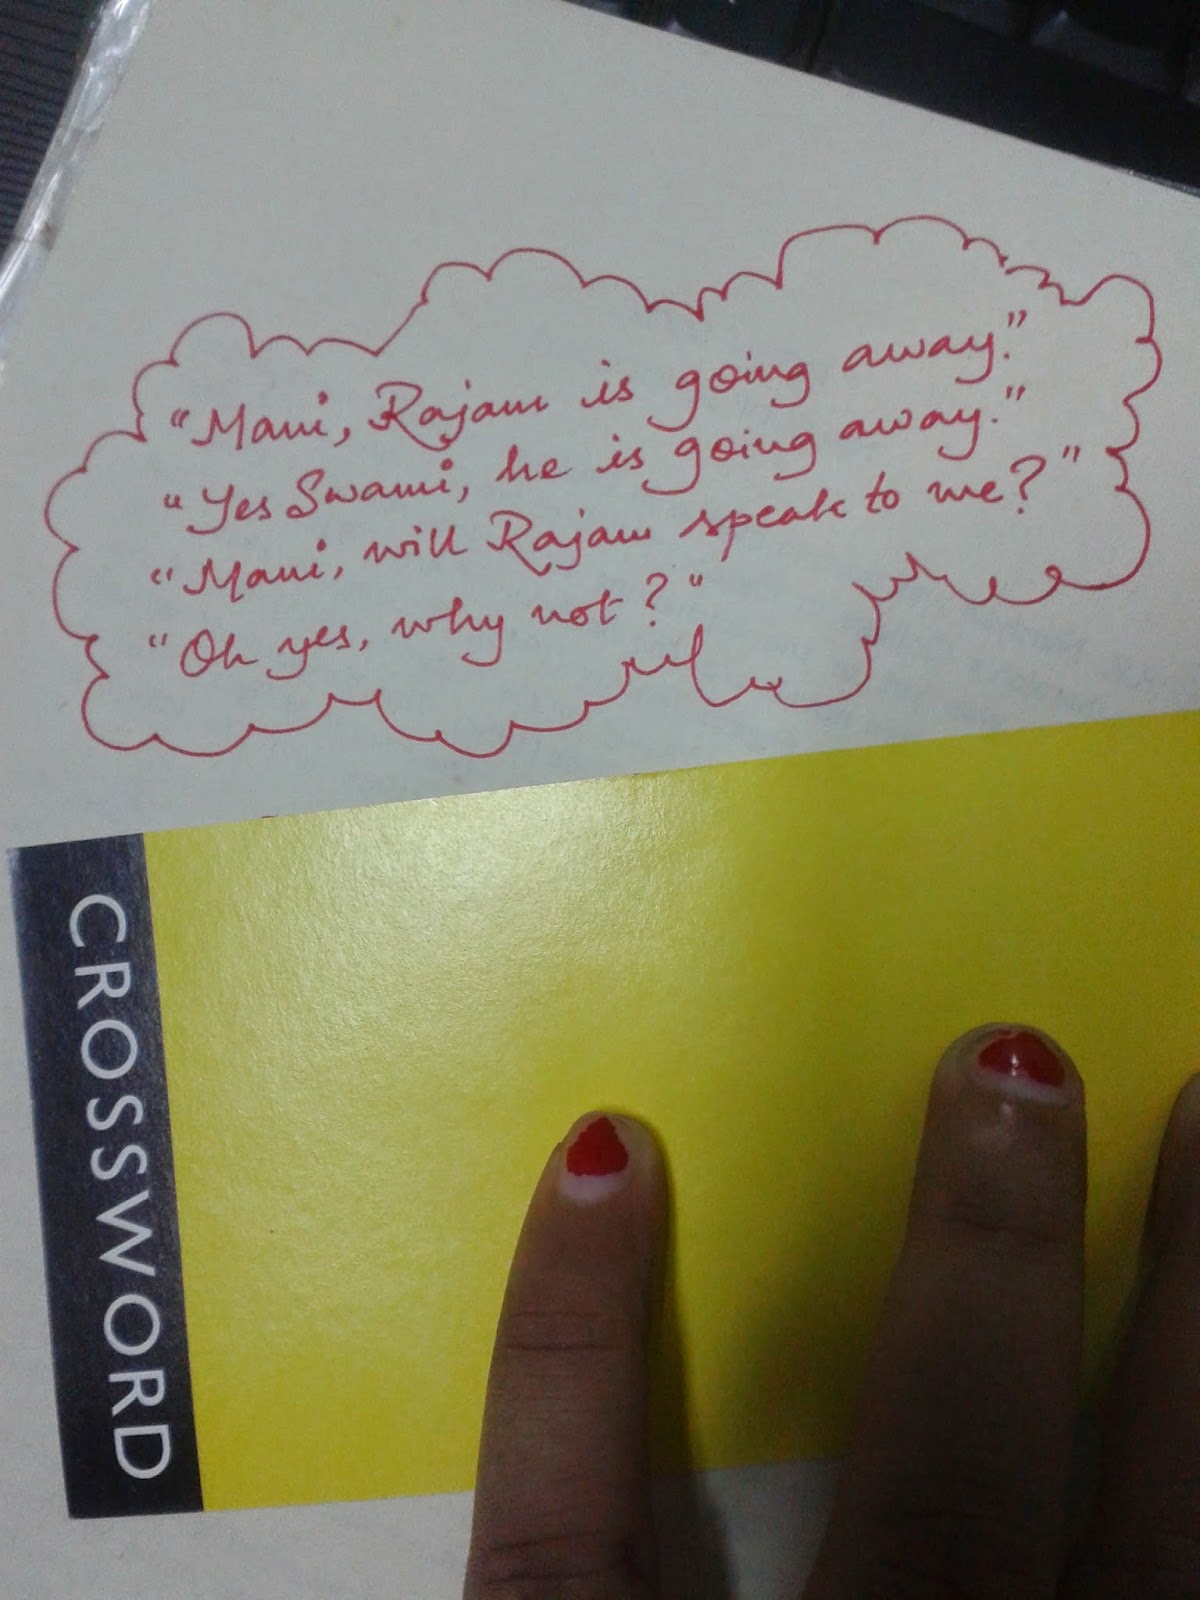 "Mani, Rajam is going away."
"Yes Swami, he is going away."
"Mani, will Rajam speak to me?"
"Oh yes, why not?"
CROSSWORD